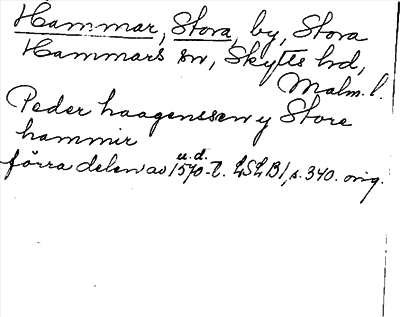 Hammar, Stora, by, Stora
Hammars sn, Skytts hd,
Malm. l.
Peder haagenssen y Store
hammir
u.d.
förra delen av 1570-t. LSLB1, s. 340. orig.